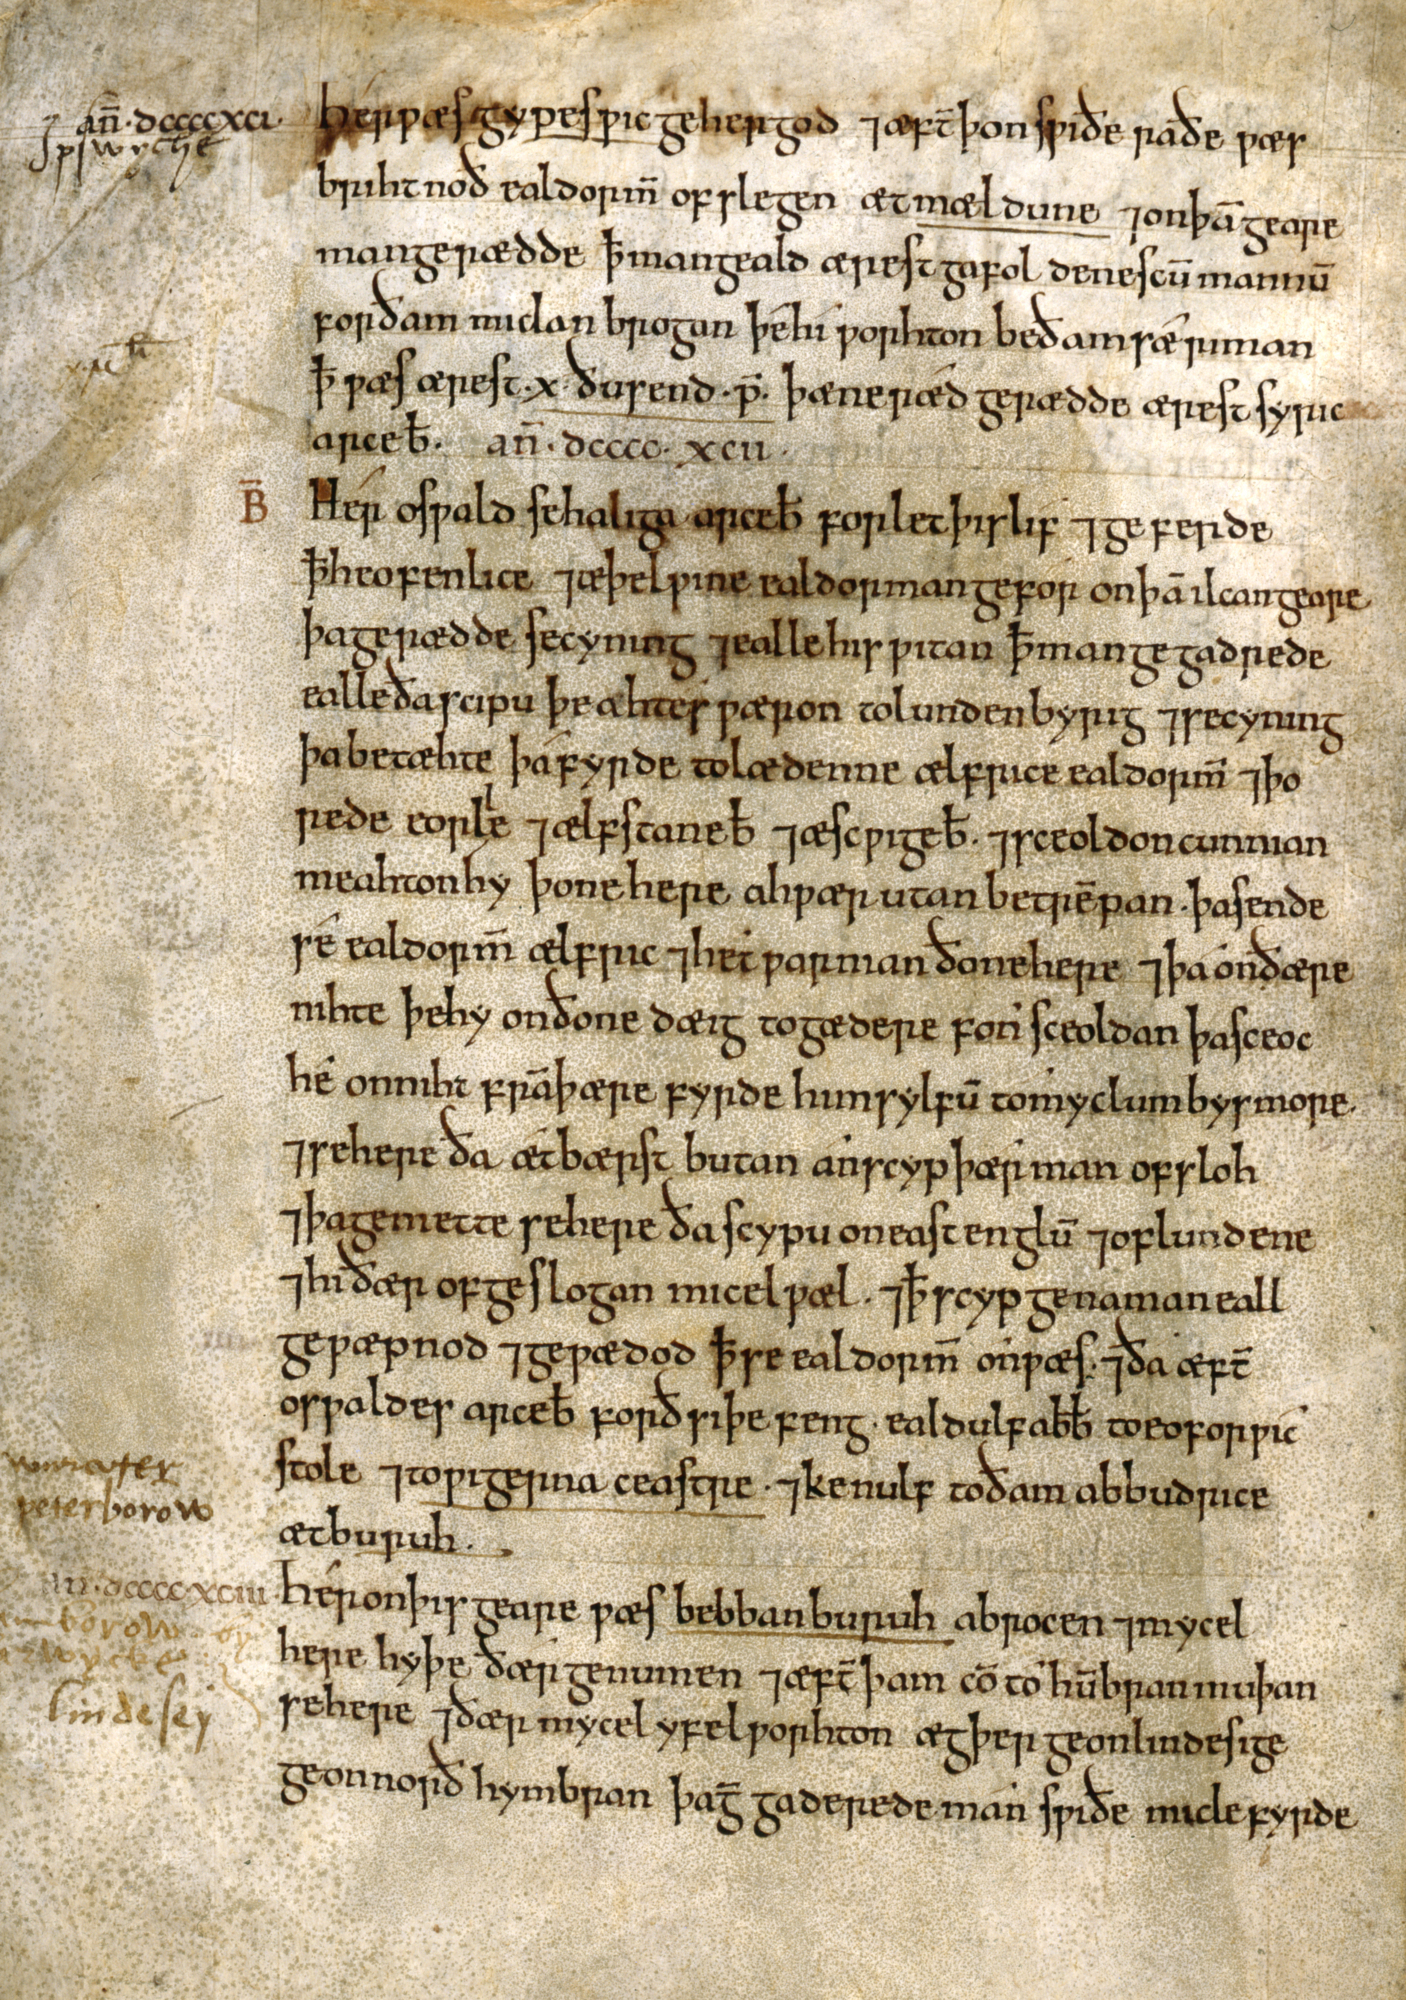 an̄ · dcccc xci ·
Ipswyche
hér ƿæs gypesƿic gehergod ⁊ æft̄ þon sƿiðe raðe ƿæs
brihtnoð ealdorm̄ ofslegen æt mældune ⁊ on þā geare
man gerædde ꝥ man geald ærest gafol deniscū mannū
for ðam miclan brogan þé hí ƿorhton be ðam sǽriman
ꝥ ƿæs ærest · x · ðusend · ƿ̄ · þæne rǽd gerædde ærest syric
arceb̄ · an̄ · dcccc · xcii ·
B̄
Hér osƿald se haliga arceb̄ forlet þis lif ⁊ geferde
ꝥ heofenlice ⁊ æþelƿine ealdorman gefór on þā ilcan geare
þa gerædde se cyning ⁊ ealle his ƿitan ꝥ man gegadrede
ealle ða scipu þe ahtes ƿæron to lundenbyrig ⁊ se cyning
þa betæhte þá fyrde to lædenne ælfrice ealdorm̄ ⁊ þo
rede eorle ⁊ ælfstane b̄ ⁊ æscƿige b̄ · ⁊ sceoldon cunnian
meahton hy þone here ahƿær utan betrēƿan · þa sende
sé ealdorm̄ ælfric ⁊ het ƿarnian ðone here ⁊ þa on ðære
nihte þe hy on ðone dæig togædere fón sceoldan þa sceoc
hé on niht frā þære fyrde him sylfū to myclum bysmore ·
⁊ se here ða ætbærst butan án scyp þær man ofsloh
⁊ þa gemette se here ða scypu on eastenglū ⁊ of lundene
⁊ hi ðær ofgeslogan micel ƿæl · ⁊ ꝥ scyp genaman eall
geƿæpnod ⁊ geƿædod ꝥ se ealdorm̄ on ƿæs · ⁊ ða æft̄
osƿaldes arceb̄ forðsiþe feng · ealdulf abb̄ to eoforƿic
stole ⁊ to ƿigerna ceastre · ⁊ kenulf to ðam abbudrice
æt buruh ·
peterborow
dcccc xciii
hér on þis geare ƿæs bebban buruh abrocen ⁊ mycel
here hyþe ðær genumen ⁊ æft̄ þam cō to hūbran muþan
se here ⁊ ðær mycel yfel ƿorhton ægþer ge on lindesige
ge on norðhymbran þa ḡgaderede man sƿiðe micle fyrde
borow
lindesey